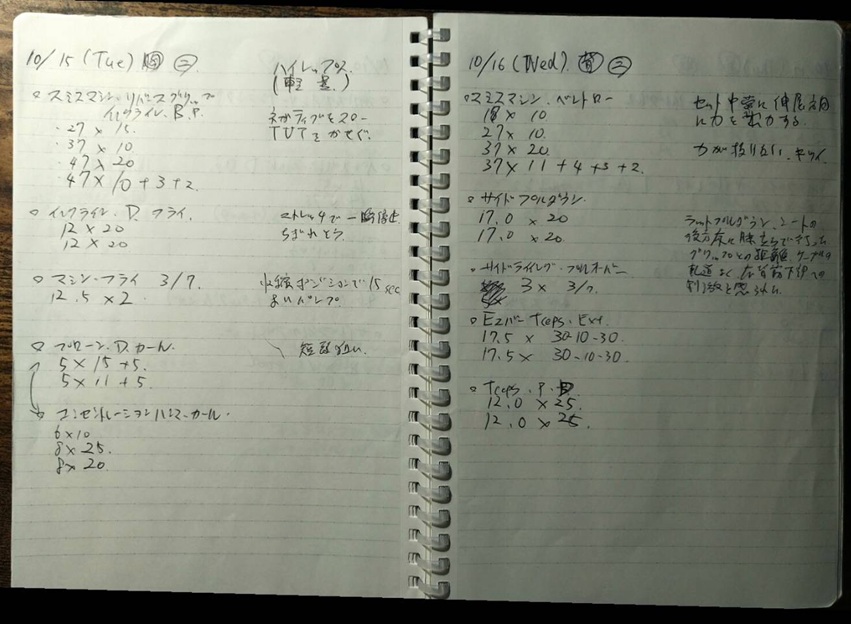 10/15 (Tue) 胸 ㊁
ハイレップス
(軽 重)
○ スミスマシン・リバースグリップ
インクライン B.P.
・27 × 15
・37 × 10
・47 × 20
・47 × 10 + 3 + 2
ネガティブをスロー
TUTをかせぐ。
○ インクライン・D. フライ
12 × 20
12 × 20
ストレッチで一瞬停止
○ マシン・フライ 3/7.
12.5 × 2
収縮ポジションで 15 sec
よいパンプ
○ プローン・D.カール
5 × 15 + 5.
5 × 11 + 5
短頭狙い
○ コンセントレーションハンマーカール
6 × 10
8 × 25.
8 × 20.
10/16 (Wed). 背 ㊁
スミスマシン・ベントロー
17 × 10
27 × 10.
37 × 20.
37 × 11 + 4 + 3 + 2.
セット中常に
力が抜けない、キツイ
○ サイドプルダウン
17.0 × 20
17.0 × 20.
ラットプルダウン、シートの
後方床に膝立ちで行う。
グリップとの距離、ケーブルの
軌道よく、広背筋下部への
刺激を感じた
サイドライイング・プルオーバー
3 × 3/7.
○ Ezバー Tceps. Ext.
17.5 × 30-10-30
17.5 × 30-10-30.
○ Tceps. P. D
12.0 × 25
12.0 × 25.